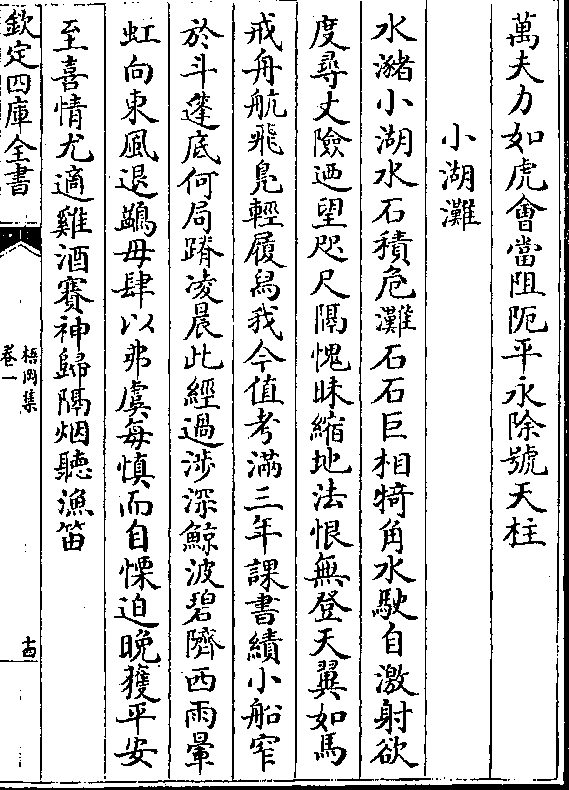 萬夫力如虎會當阻阨平永除號天柱
小湖灘
水瀦小湖水石積危灘石石巨相犄角水駛自激射欲
度尋丈險迺望咫尺隔愧昧縮地法恨無登天翼如馬
戒舟航飛鳧輕履舄我今值考滿三年課書績小船窄
於斗蓬底何局蹐凌晨此經過涉深鯨波碧隮西雨暈
虹向東風退鷁毋肆以弗虞每慎而自慄迫晚獲平安
至喜情尤適雞酒賽神歸隔烟聽漁笛
欽定四庫全書
梧岡集
卷一
十四